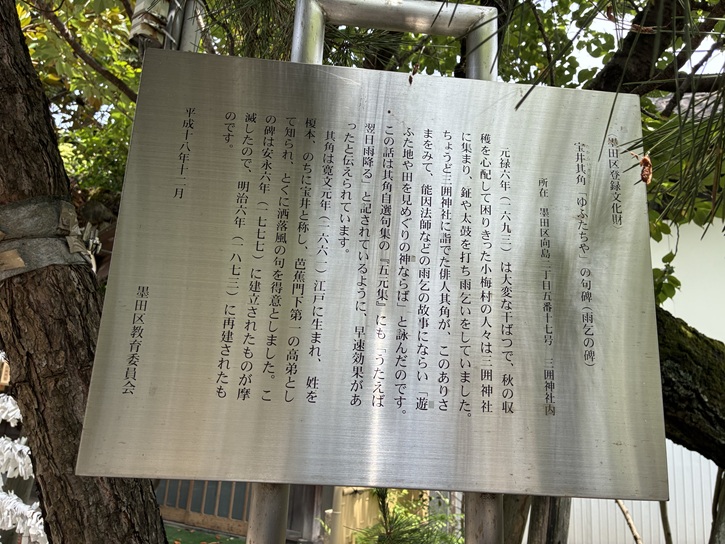 (墨田区登録文化財)
宝井其角「ゆふだちや」の句碑(雨乞の碑)
所在 墨田区向島二丁目五番十七号 三囲神社内
元禄六年(一六九三)は大変な干ばつで、秋の収
穫を心配して困りきった小梅村の人々は三囲神社
に集まり、鉦や太鼓を打ち雨乞いをしていました。
ちょうど三囲神社に詣でた俳人其角が、このありさ
まをみて、能因法師などの雨乞の故事にならい「遊
ふた地や田を見めぐりの神ならば」と詠んだのです。
この話は其角自選句集の『五元集』にも「うたえば
翌日雨降る」と記されているように、早速効果があ
ったと伝えられています。
其角は寛文元年(一六六一)江戸に生まれ、姓を
榎本、のちに宝井と称し、芭蕉門下第一の高弟とし
て知られ、とくに洒落風の句を得意としました。こ
の碑は安永六年(一七七七)に建立されたものが摩
滅したので、明治六年(一八七三)に再建されたも
のです。
平成十八年十二月
墨田区教育委員会